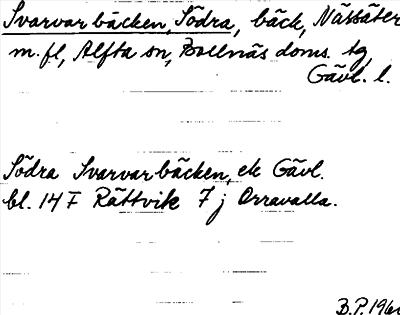 Svarvarbäcken, Södra, bäck, Nässäter
m.fl, Alfta sn, Bollnäs doms. tg,
Gävl. l.
Södra Svarvarbäcken, ek Gävl.
bl. 14 F Rättvik 7 j Orravalla.
B.P. 196